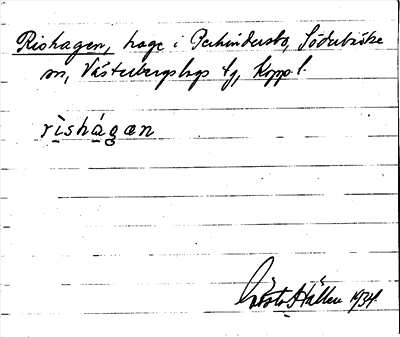 Rishagen, hage i Perhindersbo, Söderbärke
sn, Västerbergslags tg, Kopp.l.
rishágan
Gösta Hállen 1934